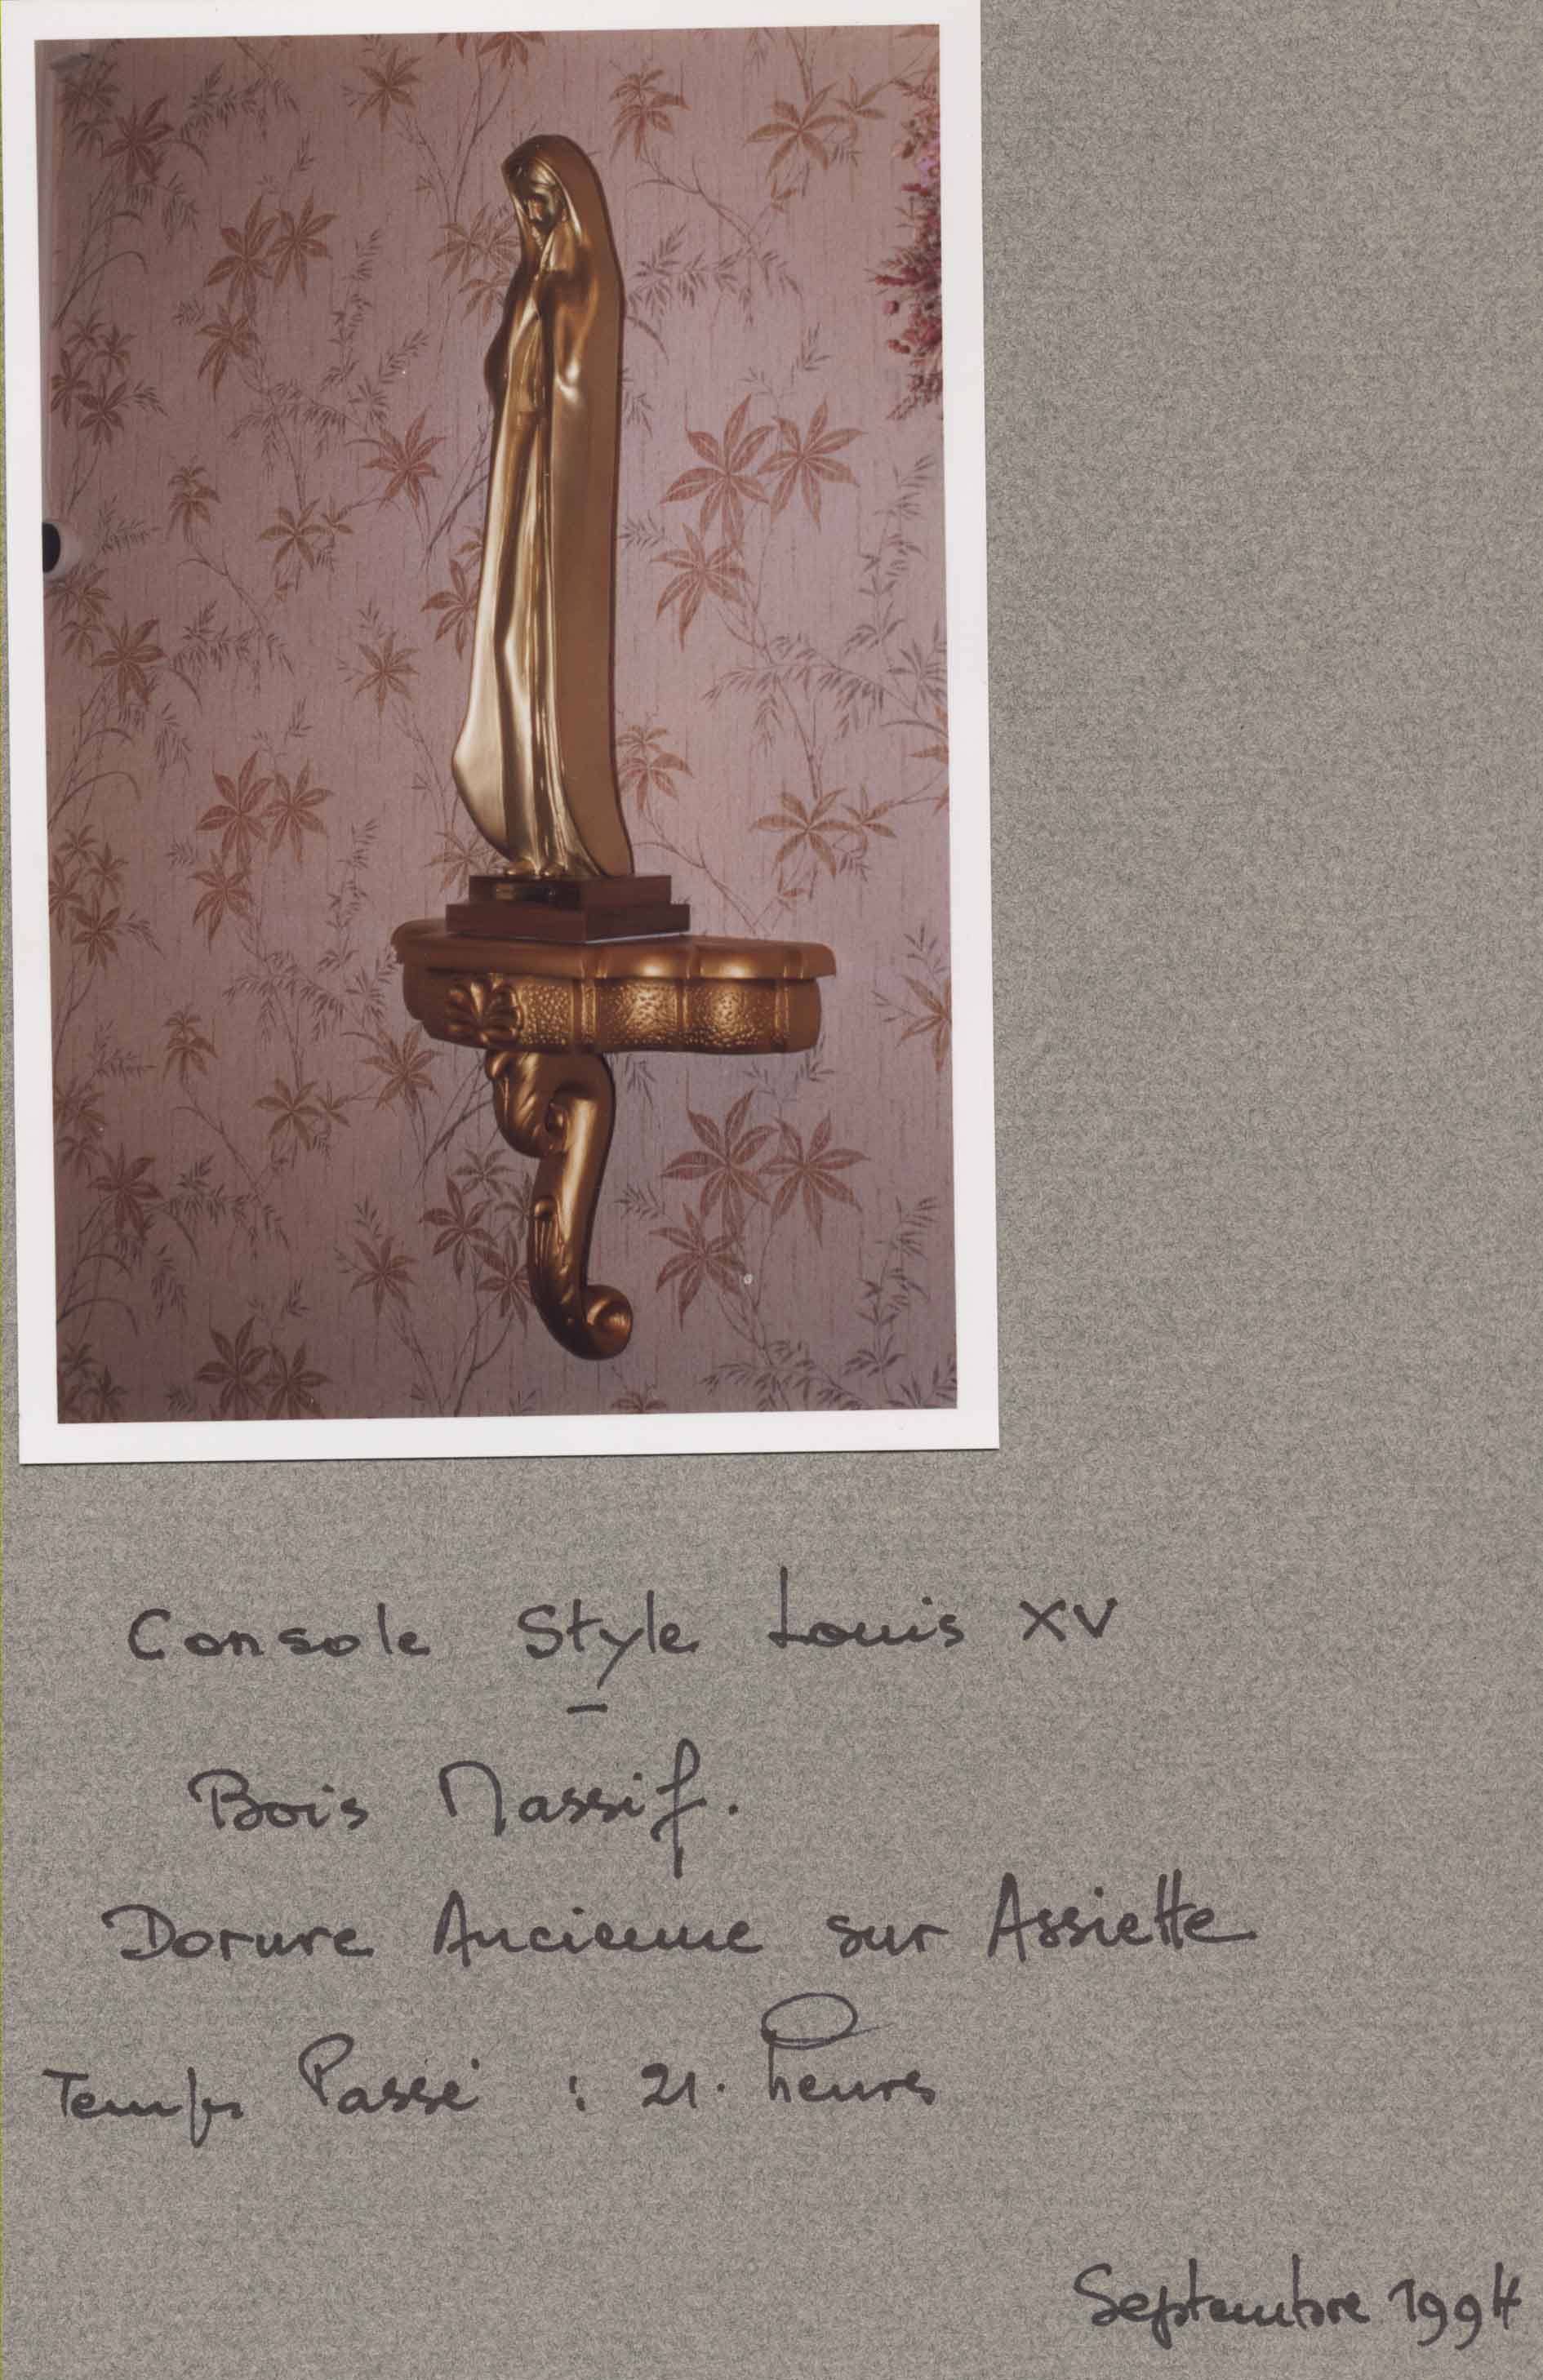 Console Style Louis XV
–
Bois Massif.
Dorure Ancienne sur Assiette
Temps Passé : 21. heures
Septembre 1994